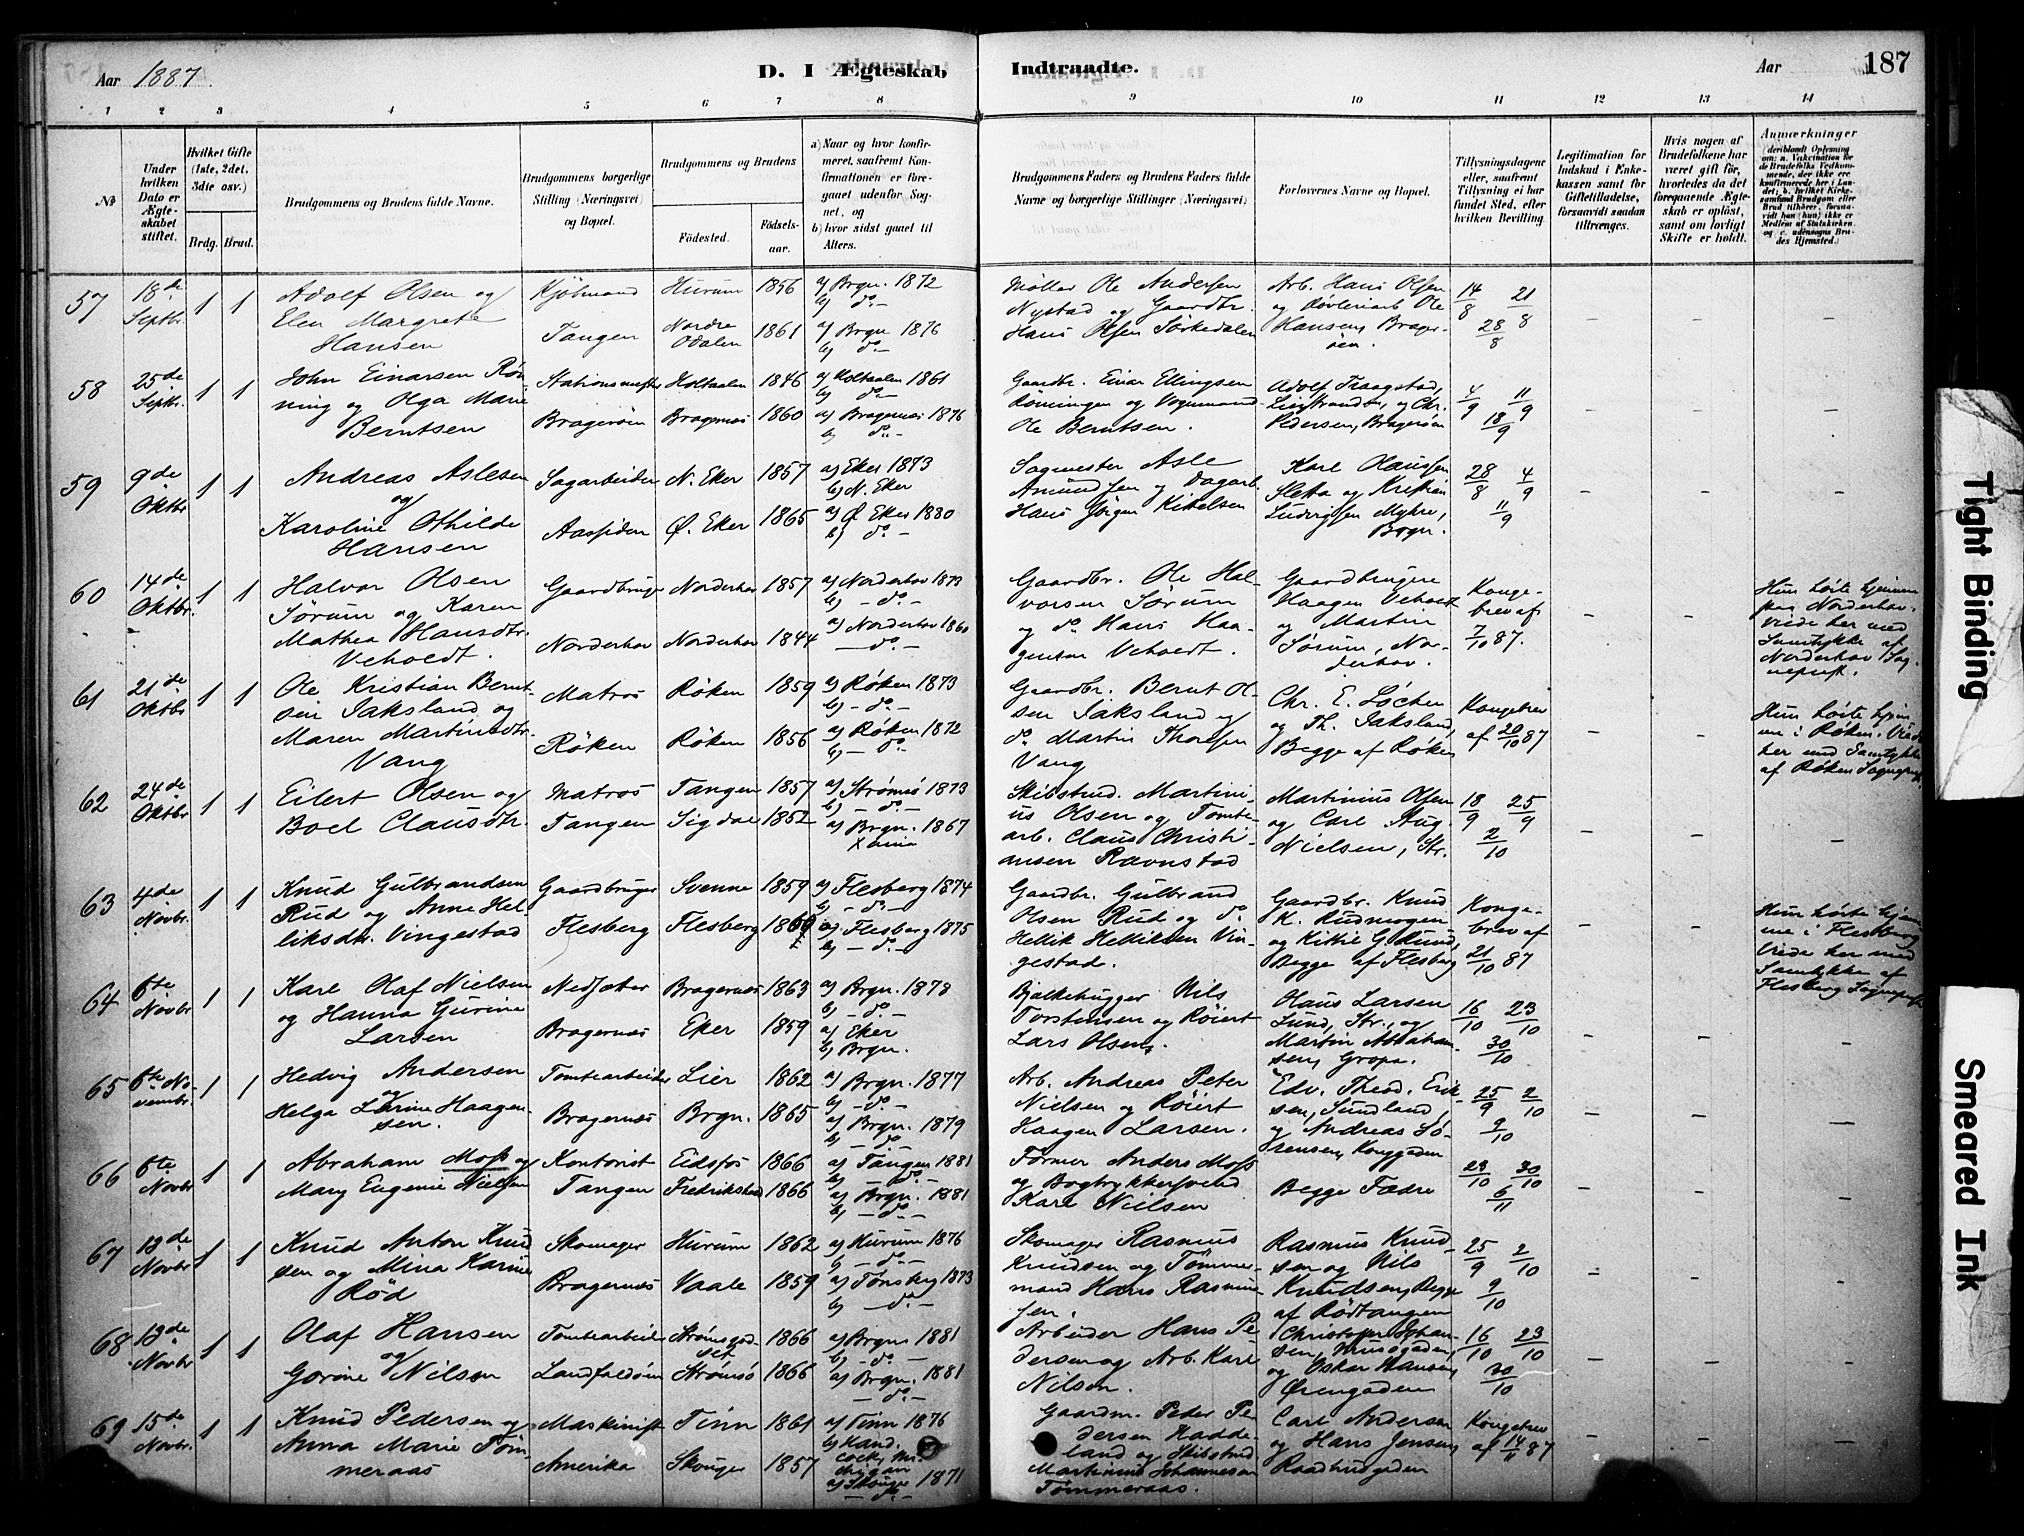 Aar 1887.
D. I Ægteskab Indtraadte.
Aar 187
1 2 3 4 5 6 7 8 9 10 11 12 13 14
№
Under hvilken Dato er Ægteskabet stiftet.
Hvilket Gifte (1ste, 2det, 3die osv.)
Brdg. Brud.
Brudgommens og Brudens fulde Navne.
Brudgommens borgerlige Stilling (Næringsvei) og Bopæl.
Brudgommens og Brudens
Fødested. Fødselsaar.
a) Naar og hvor konfirmeret, saafremt Konfirmationen er foregaaet udenfor Sognet, og
b) hvor sidst gaaet til Alters.
Brudgommens Faders og Brudens Faders fulde Navne og borgerlige Stillinger (Næringsvei)
Forlovernes Navne og Bopæl.
Tillysningsdagene eller, saafremt Tillysning ei har fundet Sted, efter hvilken Bevilling
Legitimation for Indskud i Enkekassen samt for Giftetilladelse, forsaavidt saadan tiltrænges.
Hvis nogen af Brudefolkene har været gift før, hvorledes da det foregaaende Ægteskab er opløst, samt om lovligt Skifte er holdt.
Anmærkninger
57 18de Septbr. 1 1 Adolf Olsen og Elen Margrete Hansen
Kjøbmand Tangen
Hurum 1856 a) Brgn. 1872 b) do
Nordre Odalen 1861 a) Brgn 1876 b) do
Møller Ole Andersen Nystad og Gaardbr. Hans Olsen Sørkedalen
Arb. Hans Olsen og Ole Hansen, Bragerøen.
14/8 21/8 28/8
58 25de Septbr. 1 1 John Einarsen Rønning og Olga Marie Berntsen
Stationsmester Bragerøen
Holtaalen 1846 a) Holtaalen 1861 b) do
Bragernæs 1860 a) Bragernæs 1876 b) do
Gaardbr. Einar Ellingsen Røningen og Vognmand Ole Berntsen.
Adolf Traagstad, Lierstranden, og Chr. Pedersen, Bragerøen
4/9 11/9 18/9
59 9de Oktbr 1 1 Andreas Aslesen og Karoline Othilde Hansen
Sagarbeider Aassiden
N. Eker 1857 a) Eker 1873 b) N. Eker
Ø. Eker 1865 a) Ø. Eker 1880 b) do
Sagmester Asle Amundsen og Dagarb. Hans Jørgen Kittelsen
Karl Olaussen Sletta og Kristian Ludvigsen Myhre, Brgn.
28/8 4/9 11/9
60 14de Oktbr. 1 1 Halvor Olsen Sørum og Karen Mathea Hansdtr. Veholdt.
Gaardbruger Norderhov
Norderhov 1857 a) Norderhov 1873 b) do
Norderhov 1844 a) Norderhov 1860 do
Gaardbr. Ole Halvorsen Sørum og do Hans Haagensen Veholdt.
Gaardbrugere Haagen Veholdt og Martin Sørum, Norderhov.
Kongebrev af 7/10 87.
Hun hørte hjemme paa Norderhov. Viede her med Samtykke af Norderhov Sogneprest.
61 21de Oktbr 1 1 Ole Kristian Berntsen Jaksland og Maren Martinsdtr. Vang
Matros Røken
Røken 1859 a) Røken 1873 b) do
Røken 1856 a) Røken 1872 b) do
Gaardbr. Bernt Olsen Jaksland og do Martin Thoresen Vang
Chr. E. Løchen og Th. Jaksland, Begge af Røken
Kongebrev af 20/10 87
Hun hørte hjemme i Røken. Viede her med Samtykke af Røken Sogneprest.
62 24de Oktbr 1 1 Eilert Olsen og Boel Clausdtr.
Matros Tangen
Tangen 1857 a) Strømsø 1873 b) do
Sigdal 1852 a) Brgn. 1867 Xania
Skibstmd. Martinius Olsen og Tomtearb. Claus Christiansen Ravnstad
Martinius Olsen og Carl Aug. Nielsen, Str.
18/9 25/9 2/10
63 4de Novbr. 1 1 Knud Gulbrandsen Rud og Anne Helliksdtr. Vingestad
Gaardbruger Flesberg
Svenne 1859 a) Flesberg 1874 b) do
Flesberg 1860 a) Flesberg 1875 b) do
Gaardbr. Gulbrand Olsen Rud og do. Hellik Helliksen Vingestad.
Gaardbr. Knud K. Rudmogen og Kittil G. Rund, Begge af Flesberg
Kongebrev af 21/10 87
Hun hørte hjemme i Flesberg Viede her med Samtykke af Flesberg Sogneprest
64 6te Novbr 1 1 Karl Olaf Nielsen og Hanna Gurine Larsen
Bragernæs
Bragernæs 1863 a) Brgn. 1878 b) do
Eker 1859 a) Eker b) Brgn.
Bjelkehugger Nils Torstensen og Røiert Lars Olsen.
Olaus Larsen Lund, Str., og Martin Abrahamsen, Gropa.
16/10 23/10 30/10
65 6te Novembr. 1 1 Hedvig Andersen og Helga Lovrine Haagensen.
Tomtearbeider Bragernæs
Lier 1862 a) Brgn. 1877 b) do
Brgn. 1865 a) Brgn. 1879 b) do
Arb. Andreas Peter Nielsen og Røiert Haagen Larsen.
Edv. Theod. Eriksen, Sundland, og Andreas Sørensen, Konggaden
25/9 2/10 9/10
66 6te Novbr 1 1 Abraham Moss og Mary Eugenie Nielsen
Kontorist Tangen
Eidsfos 1866 a) Tangen 1881 b) do
Fredrikstad 1866 a) Brgn. 1881 b) do
Former Anders Moss og Bogtrykkersvend Karl Nielsen
Begge Fædre
23/10 30/10 6/11
67 13de Novbr 1 1 Knud Anton Knudsen og Mina Karine Rød
Skomager Bragernæs
Hurum 1862 a) Hurum 1876 b) do
Vaale 1859 a) Tønsberg 1873 b) do
Skomager Rasmus Knudsen og Tømmermand Hans Rasmussen.
Rasmus Knudsen og Nils Knudsen, Begge af Rødtangen
25/9 2/10 9/10
68 13de Novbr 1 1 Olaf Hansen og Gorine Nilsen
Tomtearbeider Landfaldøen
Strømsgodset 1866 a) Brgn. 1881 b) do
Strømsø 1866 a) Brgn. 1881 do
Arbeider Hans Pedersen og Arb. Karl Nilsen.
Christopher Johansen, og Oskar Hansen, Ørengaden
16/10 23/10 30/10
69 15de Novbr. 1 1 Knud Pedersen og Anna Marie Tømmeraas
Maskinist Amerika
Tinn 1861 a) Tinn 1876 b) Michigan
Skouger 1857 a) Skouger 1871 do
Gaardm. Peter Pedersen Haddeland og Skibstmd Martinius Johannesen Tømmeraas.
Carl Andersen og Hans Jensen, Raadhusgaden
Kongebrev af 14/11 87
Tight Binding
Smeared Ink